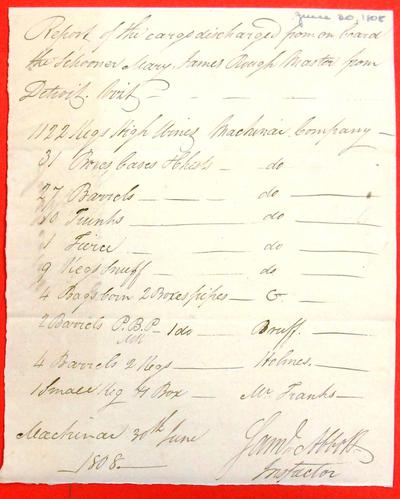 June 30, 1808
Report of the cargo discharged from on board
the Schooner Mary, James Rough Master from
Detroit. Viz
1122 Kegs High Wines Machinac Company
31 Boxes Cases Chests — do
27 Barrels — do
10 Trunks — do
1 Tierce — do
9 Kegs Snuff — do
4 Bags Corn 2 Boxes pipes — G.
2 Barrels P.B.P — 1 do — Bruff.
4 Barrels 2 Kegs — Holmes.
1 Small Keg & 1 Box — Mr Franks
Machinac 30th June
1808
Saml Abbott
Inspector